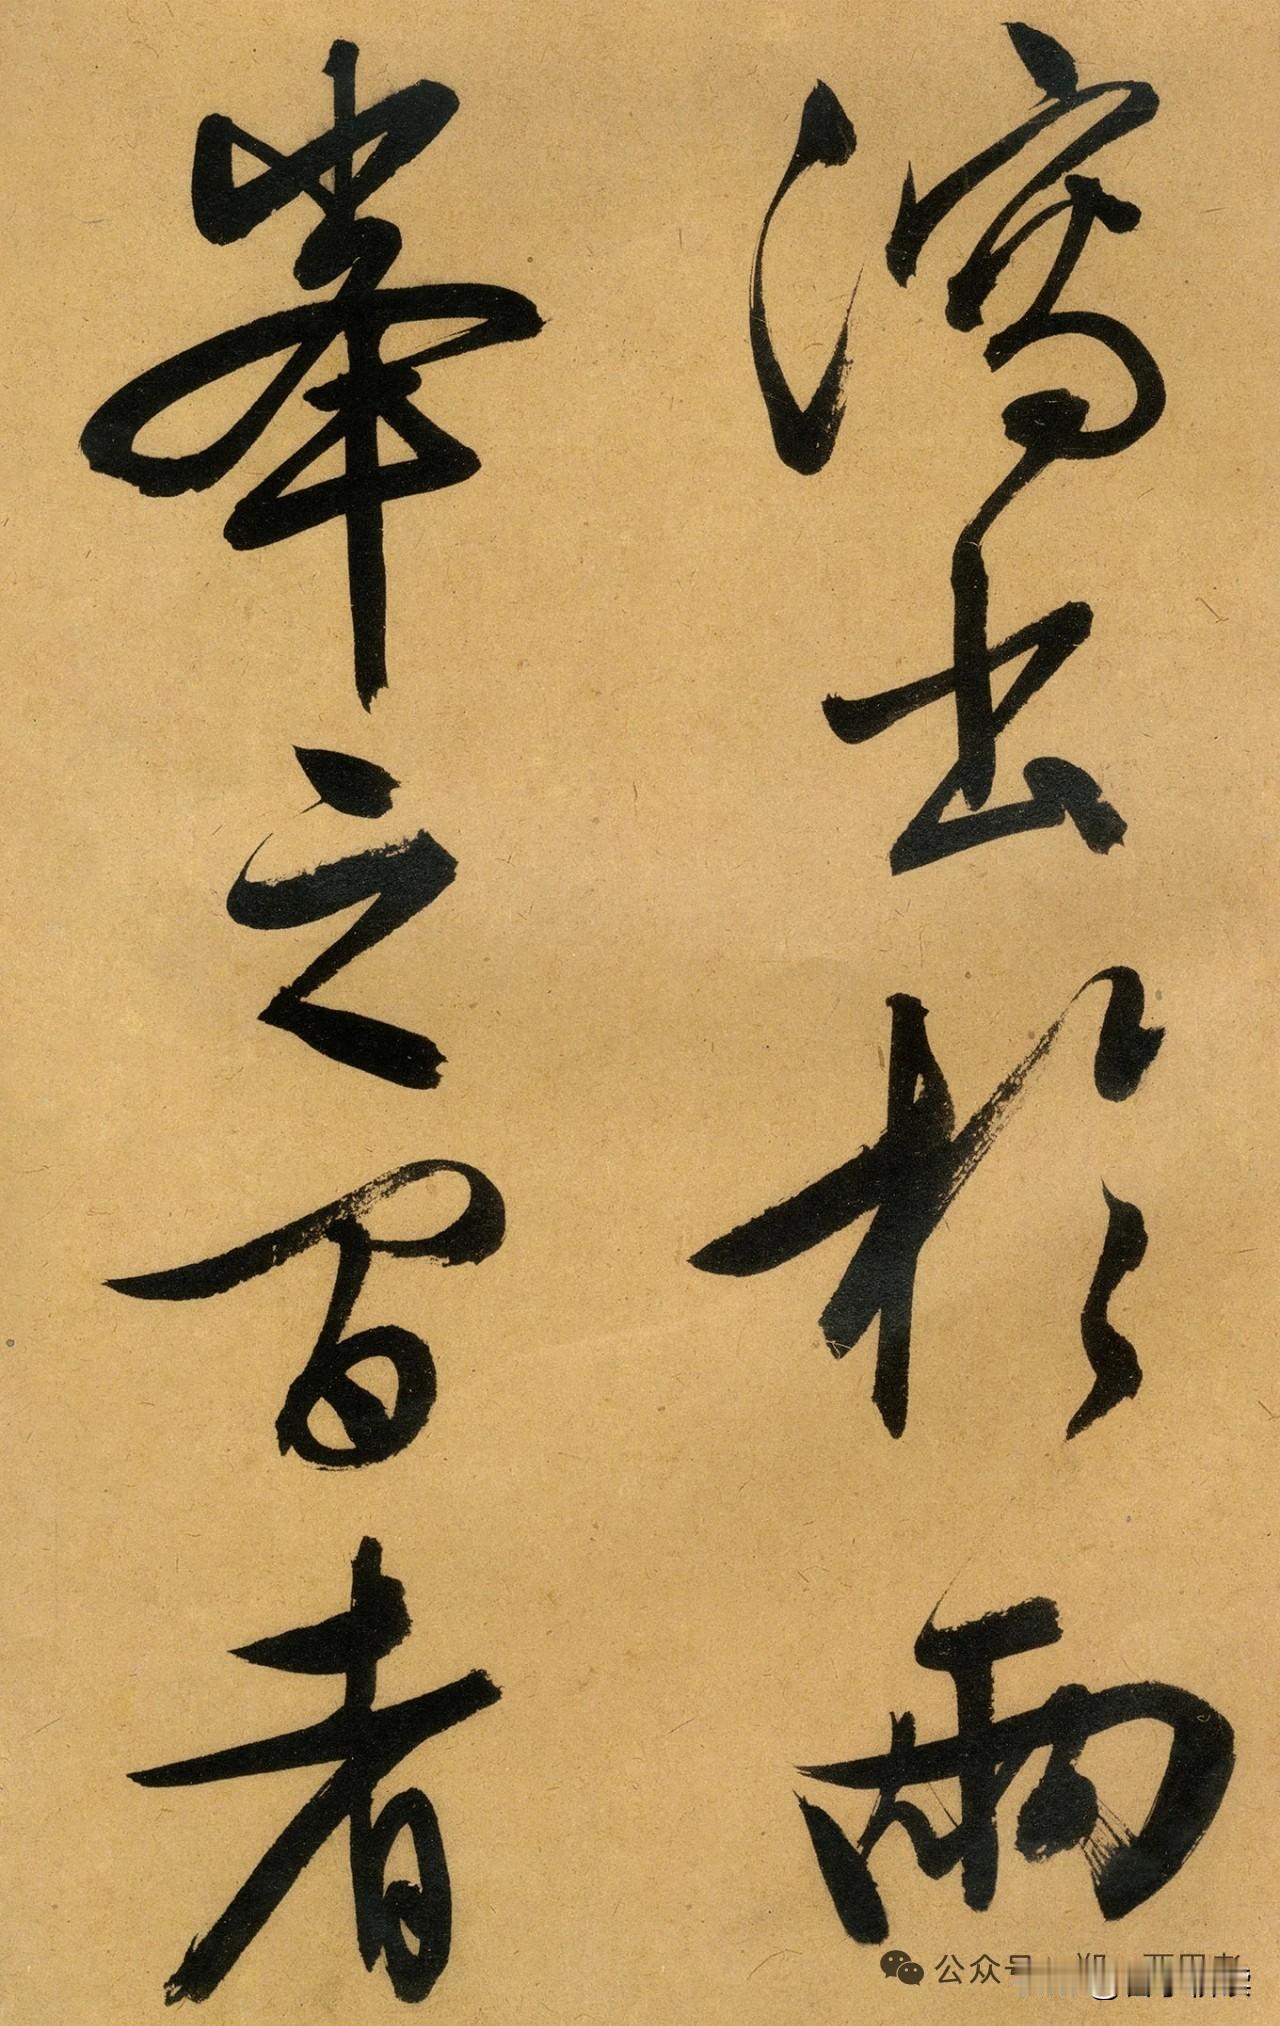 瀉出於兩
峯之間者
公众号